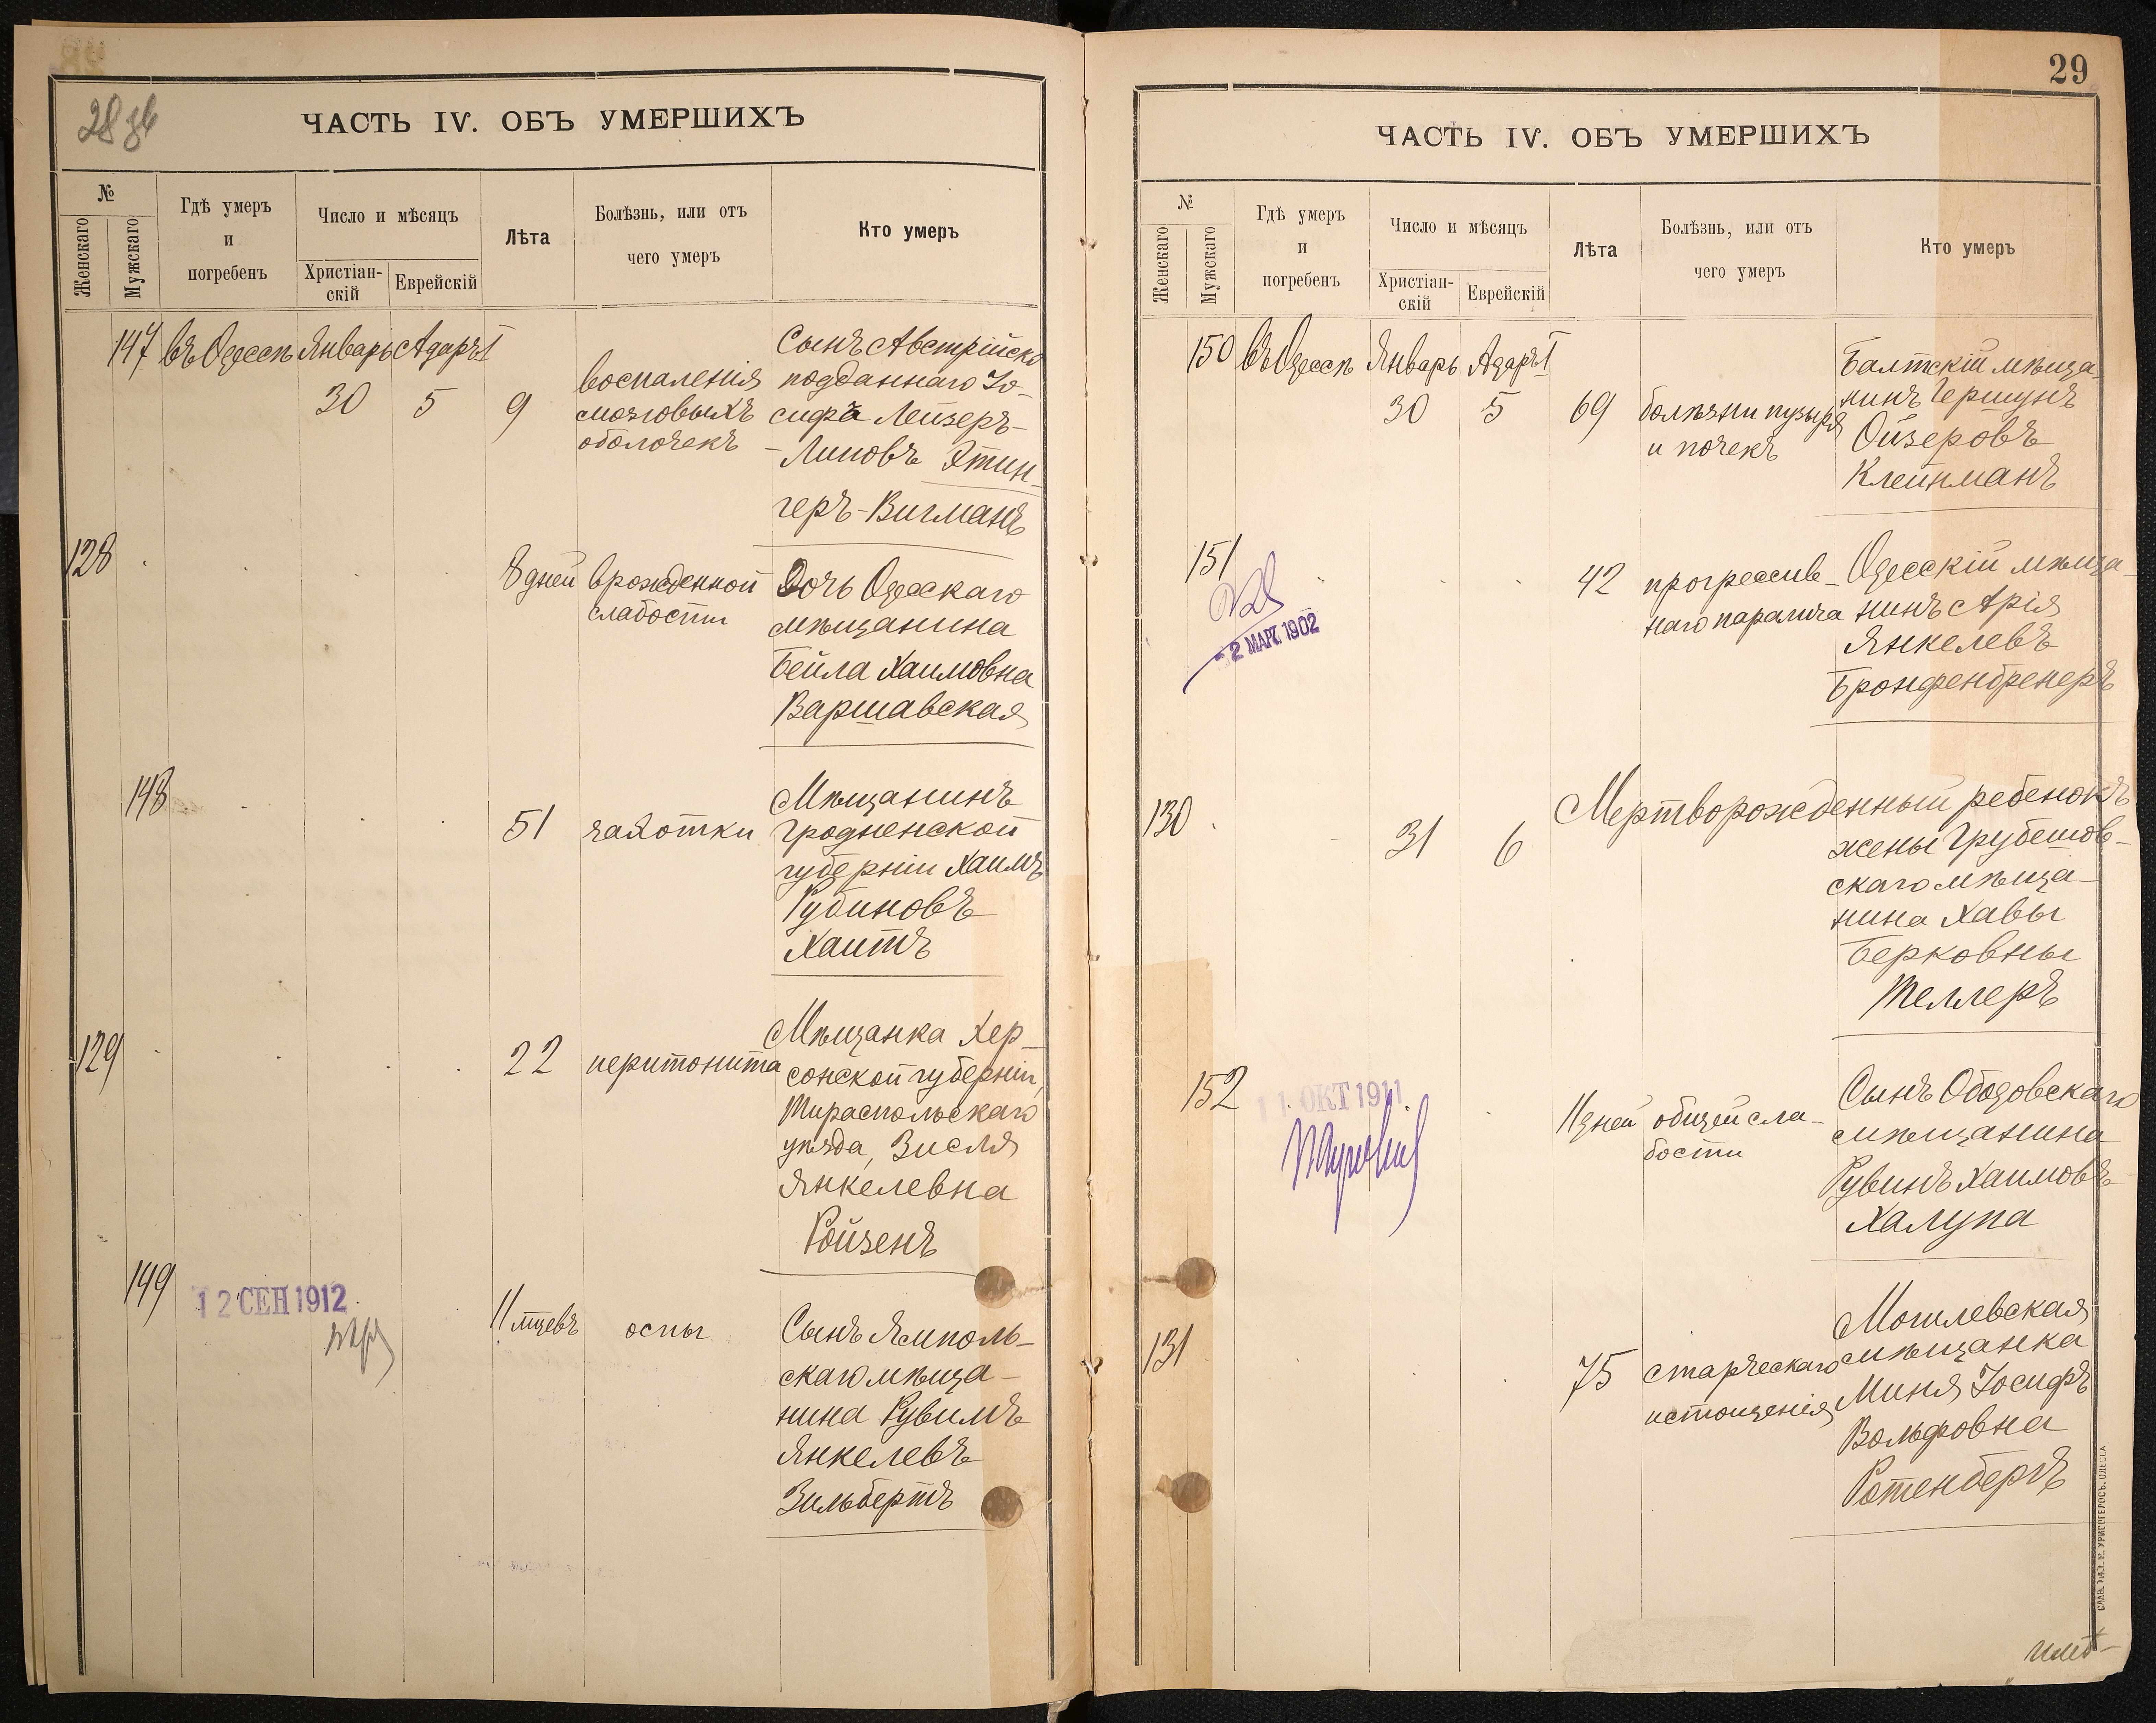 28 зв
ЧАСТЬ IV. ОБЪ УМЕРШИХЪ
№
Женскаго
Мужскаго
Гдѣ умеръ
и
погребенъ
Число и мѣсяцъ
Христіан-
скій
Еврейскій
Лѣта
Болѣзнь, или отъ
чего умеръ
Кто умеръ
147 въ Одессѣ Январь Адаръ I
30 5 9
воспаленія
мозговыхъ
оболочекъ
Сынъ Австрійско
подданнаго Іо-
сифъ Лейзеръ-
-Липовъ Этин-
геръ-Вигманъ
128
8 дней врожденной
слабости
Дочь Одесскаго
мѣщанина
Бейла Хаимовна
Варшавская
148
51 чахотки
Мѣщанинъ
Гродненской
губерніи Хаимъ
Рубиновъ
Хаитъ
129
22 перитонита
Мѣщанка Хер-
сонской губерніи,
Тираспольскаго
уѣзда, Зисля
Янкелевна
Ройзенъ
149
12 СЕН 1912
11 мцевъ оспы
Сынъ Ямполь-
скаго мѣща-
нина Рувимъ
Янкелевъ
Зильбертъ
29
ЧАСТЬ IV. ОБЪ УМЕРШИХЪ
№
Женскаго
Мужскаго
Гдѣ умеръ
и
погребенъ
Число и мѣсяцъ
Христіан-
скій
Еврейскій
Лѣта
Болѣзнь, или отъ
чего умеръ
Кто умеръ
150 въ Одессѣ Январь Адаръ I
30 5 69
болѣзни пузыря
и почекъ
Балтскій мѣща-
нинъ Гершунъ
Ойзеровъ
Клейнманъ
151
- 2 МАР. 1902
42 прогрессив-
наго паралича
Одесскій мѣща-
нинъ Арія
Янкелевъ
Бронфенбренеръ
130
31 6
Мертворожденный ребенокъ
жены Грубешов-
скаго мѣща-
нина Хавы
Берковны
Теллеръ
152
11 ОКТ 1911
11 дней общей сла-
бости
Сынъ Ободовскаго
мѣщанина
Рувинъ Хаимовъ
Халупа
131
75 старческаго
истощенія
Могилевская
мѣщанка
Миня Іосифъ
Вольфовна
Ротенбергъ